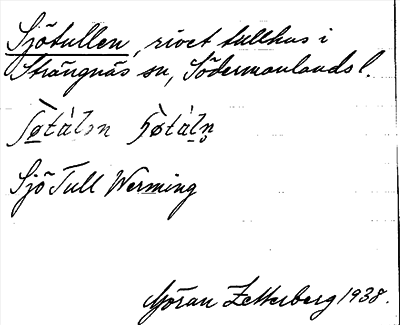 Sjötullen, rivet tullhus i
Strängnäs sn, Södermanlands l.
Sjö Tull Werming
Göran Zetterberg 1938.